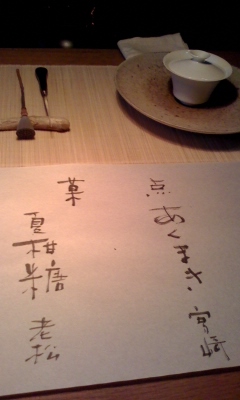 点 あくまき 宮崎
菓
夏柑糖 老松